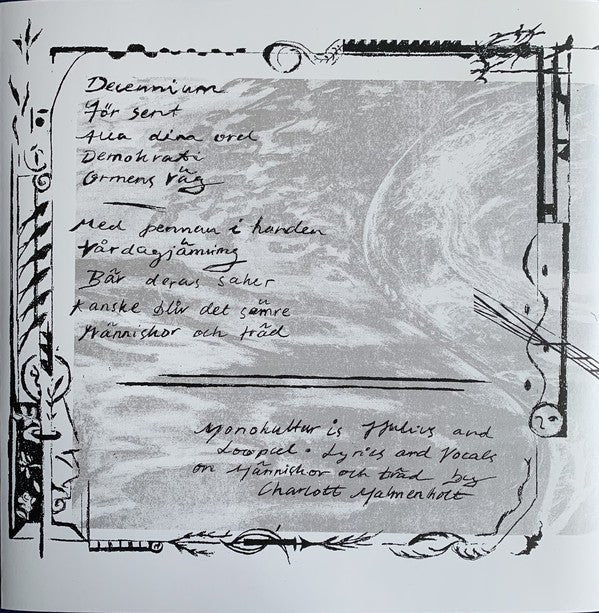 Decennium
För sent
Alla dina ord
Demokrati
Ormens väg
Med pennan i handen
Vårdagjämning
Bär deras saker
Kanske blir det sämre
Människor och träd
Monokultur is JJulius and
Loopsel • Lyrics and Vocals
on Människor och träd by
Charlott Malmenholt